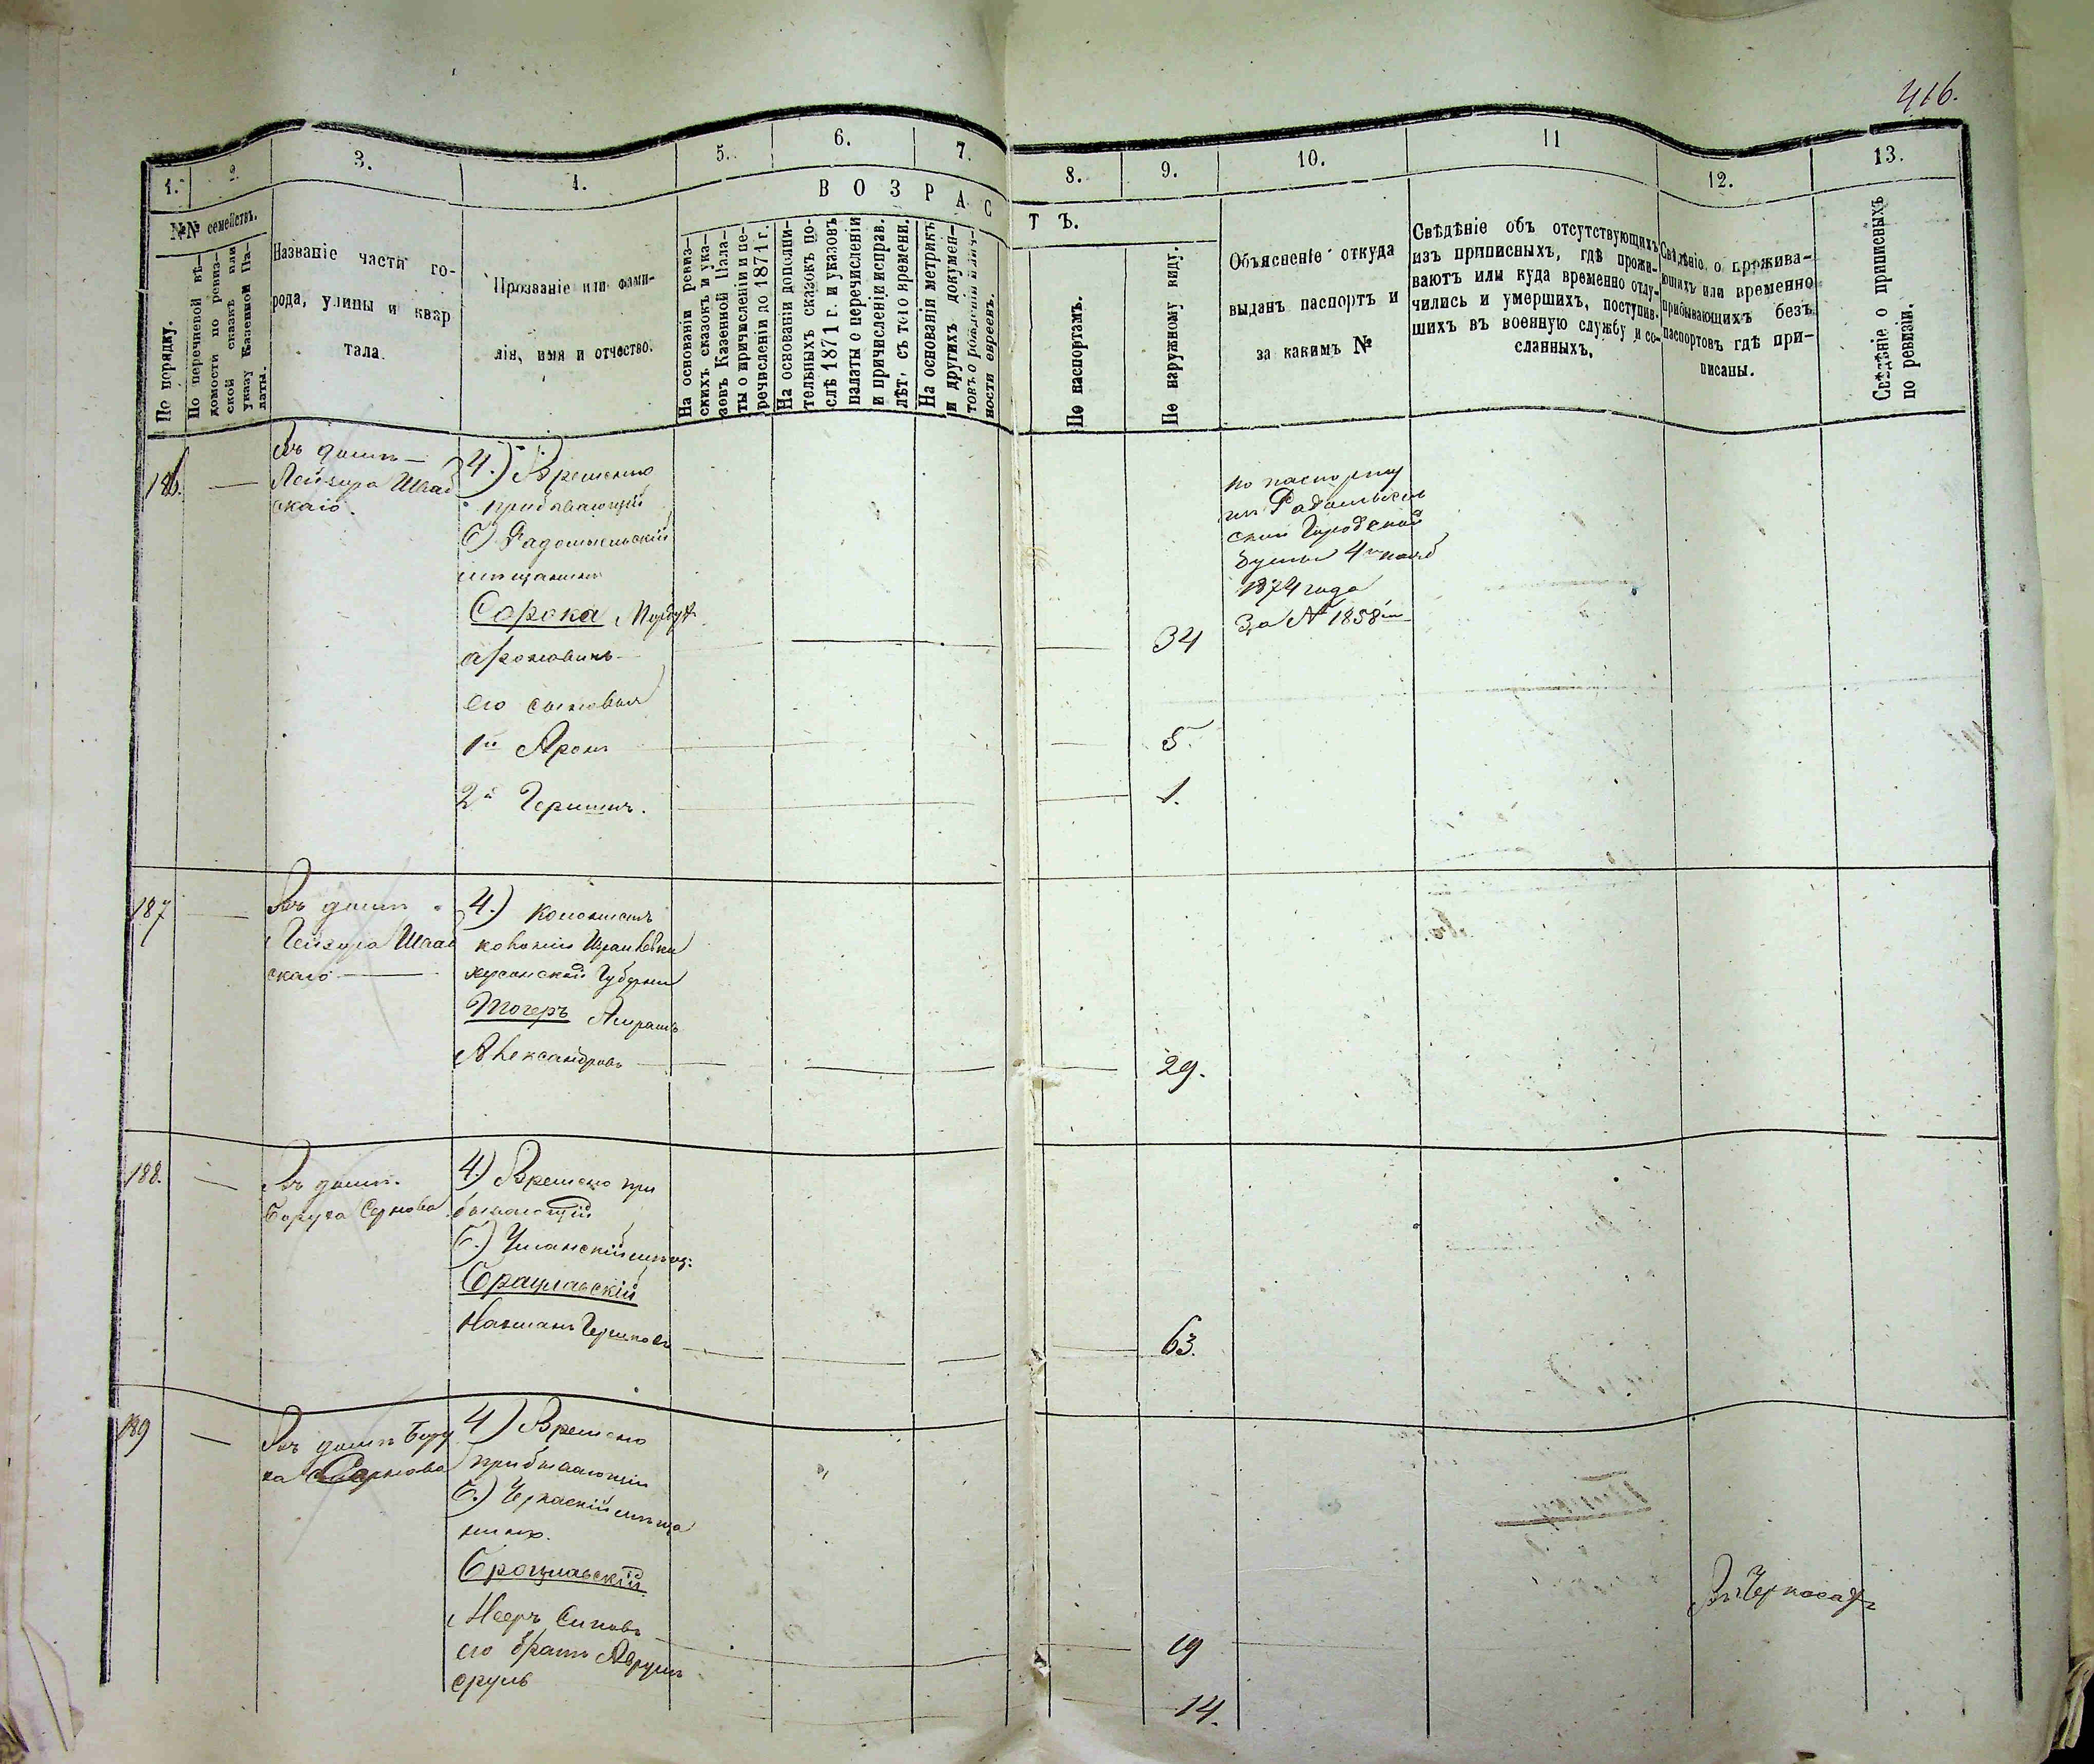 416.
1.
2.
3.
4.
5.
6.
7.
8.
9.
10.
11
12.
13.
ВОЗРАС
ТЪ.
№№ семействъ.
По порядку.
По перечневой вѣ-
домости по ревиз-
ской сказкѣ или
указу Казенной Па-
латы.
Названіе части го-
рода, улицы и квар
тала.
Прозваніе или фами-
лія, имя и отчество.
На основаніи ревиз-
скихъ сказокъ и ука-
зовъ Казенной Пала-
ты о причисленіи и пе-
речисленіи до 1871 г.
На основаніи дополни-
тельныхъ сказокъ по-
слѣ 1871 г. и указовъ
палаты о перечисленіи
и причисленіи исправ.
лѣт, съ того времени.
На основаніи метрикъ
и другихъ докумен-
товъ о рожденіи и лич-
ности евреевъ.
По паспортамъ.
По наружному виду.
Объясненіе откуда
выданъ паспортъ и
за какимъ №
Свѣдѣніе объ отсутствующихъ
изъ приписныхъ, гдѣ прожи-
ваютъ или куда временно отлу-
чились и умершихъ, поступив-
шихъ въ военную службу и со-
сланныхъ.
Свѣдѣніе о прожива-
ющихъ или временно
прибывающихъ безъ
паспортовъ гдѣ при-
писаны.
Свѣдѣніе о приписныхъ
по ревизіи.
186.
Въ домѣ
Лейзера
скаго.
4.) Временно
прибывающій
б) Радомысльскій
мѣщанинъ
Сорока
Ароновичъ
его сыновья
1й Аронъ
2й Гершонъ.
34
5.
1.
по паспорту
изъ Радомысль
ской Городской
Думы 4го нояб
1874 года
За № 1858м
187
Въ домѣ
Лейзера
скаго
4.) Колонистъ
колоніи
херсонской Губерніи
Тогеръ
Александровъ
29.
188.
Въ домѣ
Боруха Сернова
4.) Времено при
бывающій
б.) Уманскій мѣщ:
Брацлавскій
Нахманъ Гершков
63.
189
Въ домѣ Бору
ха Сарнова
4) Времено
прибывающій
б.) Черкаскій мѣща
нинъ.
Броцлавскій
Мееръ
его братъ Аврумъ
сруль
19
14.
Въ Черкасахъ